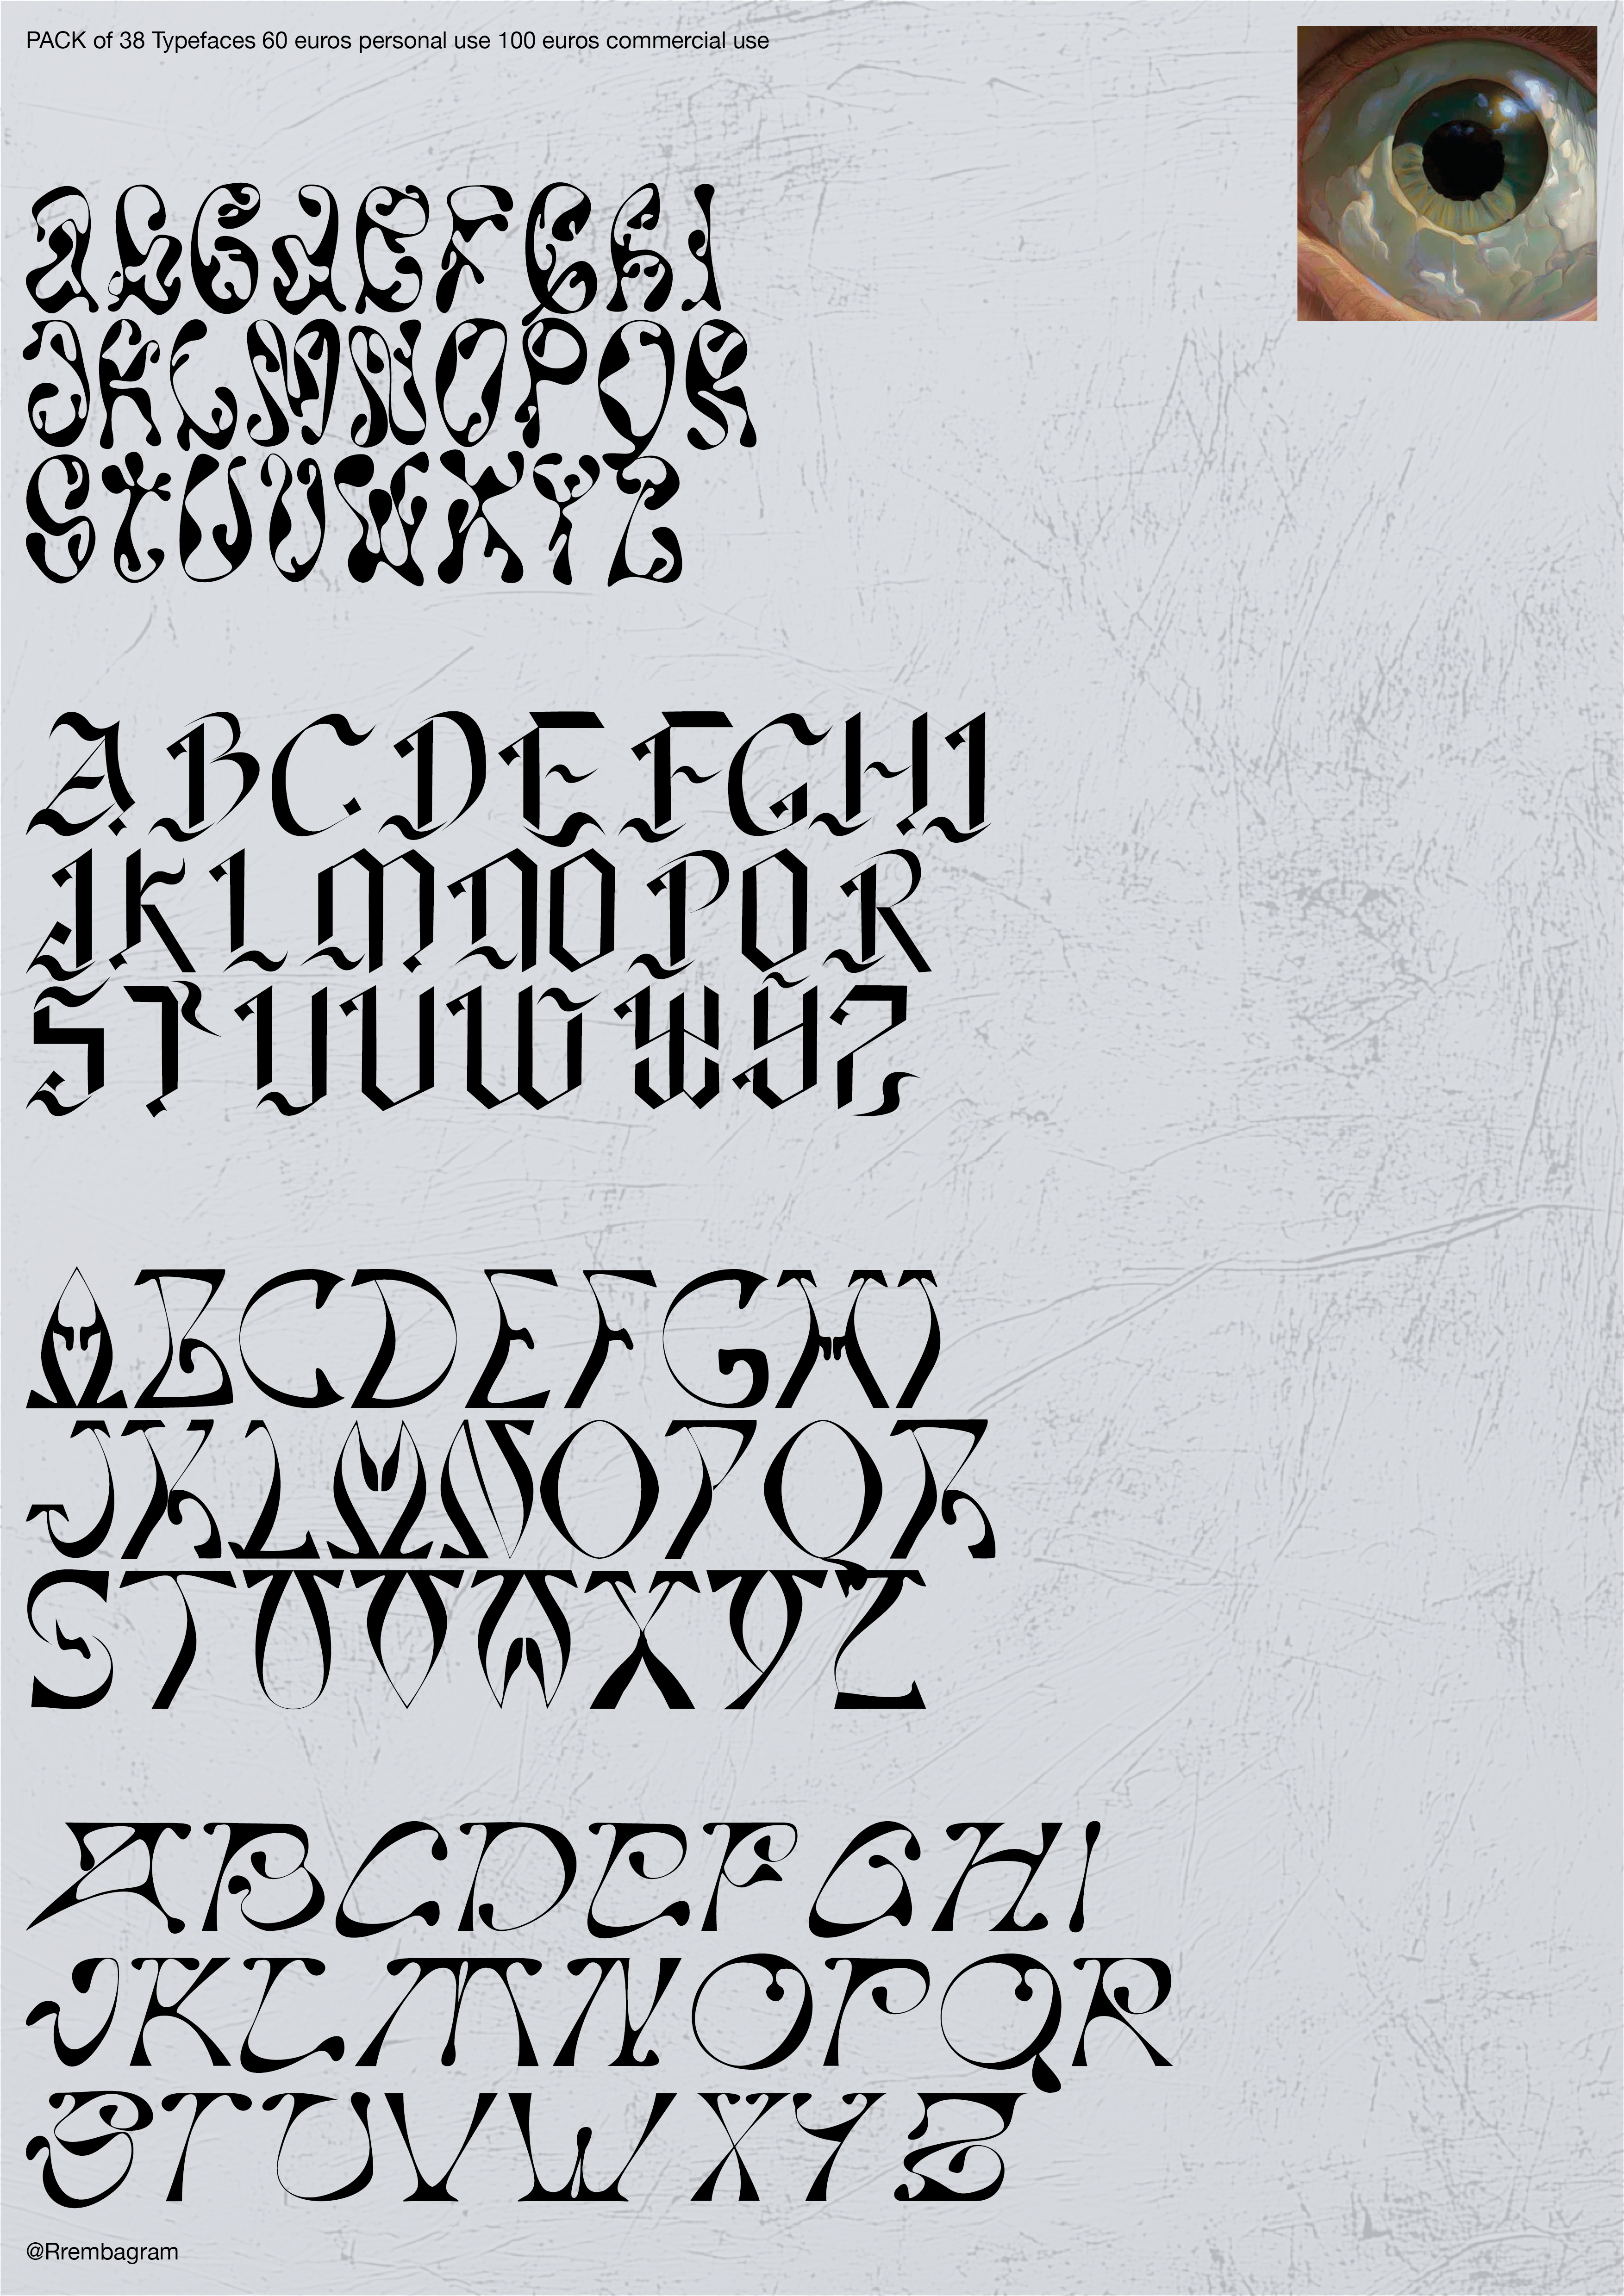 PACK of 38 Typefaces 60 euros personal use 100 euros commercial use
ABCDEFGHI
JKLMNOPQR
STUVWXYZ
ABCDEFGHI
JKLMNOPQR
STUVWXYZ
ABCDEFGHI
JKLMNOPQR
STUVWXYZ
ABCDEFGHI
JKLMNOPQR
STUVWXYZ
@Rrembagram